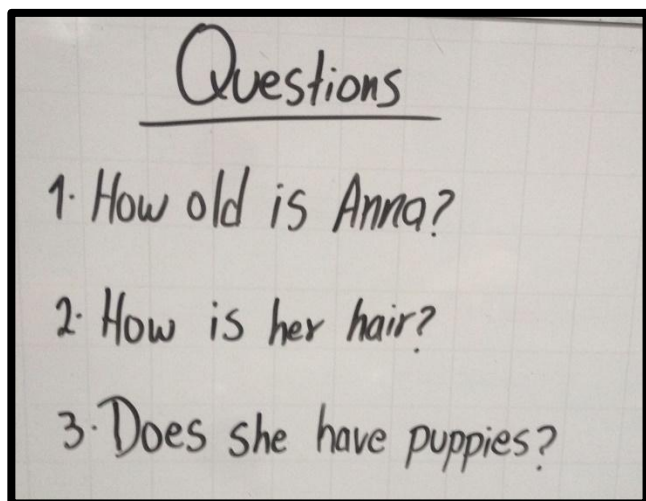 Questions
1. How old is Anna?
2. How is her hair?
3. Does she have puppies?